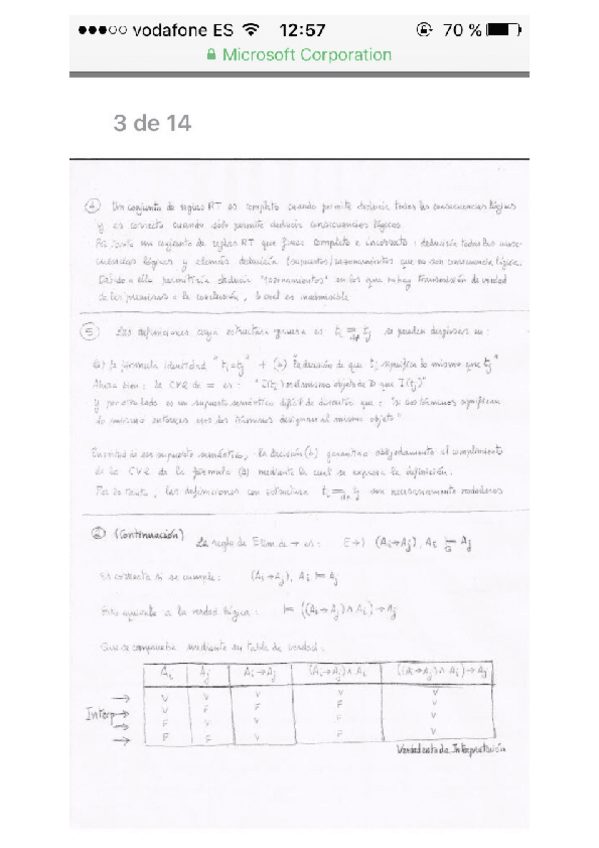 ●●●○○ vodafone ES 12:57 70 %
Microsoft Corporation
3 de 14
④ Un conjunto de reglas RT es completo cuando permite deducir todas las consecuencias lógicas
y es correcto cuando sólo permite deducir consecuencias lógicas.
un conjunto de reglas RT que fuese completo e incorrecto : deduciría todas las
lógicas y además deduciría (supuestos) razonamientos que no son consecuencia lógica.
Debido a ello permitiría deducir "razonamientos" en los que no hay transmisión de verdad
de las premisas a la conclusión, lo cual es inadmisible
⑤ Las definiciones cuya estructura general es tᵢ =df tⱼ se pueden desglosar en :
(a) la fórmula identidad "tᵢ = tⱼ" + (b) la decisión de que tᵢ significa lo mismo que tⱼ"
Ahora bien : la CV2 de = es : "I(tᵢ) es el mismo objeto de D que I(tⱼ)"
Y por otro lado es un supuesto semántico difícil de discutir que : "si dos términos significan
lo mismo entonces esos dos términos designan al mismo objeto"
En virtud de ese supuesto semántico, la decisión (b) garantiza el cumplimiento
de la CV2 de la fórmula (a) mediante la cual se expresa la definición.
Por lo tanto, las definiciones con estructura tᵢ =df tⱼ son necesariamente verdaderas
② (Continuación) La regla de Elim. de → es : E→) (Aᵢ→Aⱼ), Aᵢ ⊢ Aⱼ
Es correcta si se cumple : (Aᵢ→Aⱼ), Aᵢ ⊨ Aⱼ
Esto equivale a la verdad lógica : ⊨ ((Aᵢ→Aⱼ)∧Aᵢ)→Aⱼ
Que se comprueba mediante su tabla de verdad :
Aᵢ Aⱼ Aᵢ→Aⱼ (Aᵢ→Aⱼ)∧Aᵢ ((Aᵢ→Aⱼ)∧Aᵢ)→Aⱼ
→ V V V V V
Interp → V F F F V
→ F V V F V
→ F F V F V
Verdad en toda Interpretación